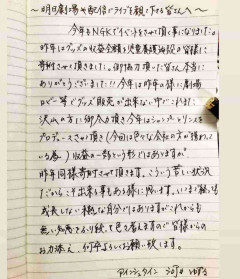 〜明日劇場や配信でライブを観て下さる皆さんへ〜
今年もNGKでイベントをさせて頂く事になりました。
昨年はグッズの収益金額を児童養護施設の皆様に
寄附させて頂きました。御協力頂いた皆さん本当に
ありがとうございました!!今年は昨年の様に劇場
ロビー等でグッズ販売が出来ない中でこれまでに
沢山の方に御入力頂き今年はシャンプーとリンスを
プロデュースさせて頂き(今回は色々な会社の方が携わって
いる為)収益の一部という形ではありますが、
昨年同様寄附させて頂きます。こういう苦しい状況
だからこそ出来る事もある様に思います。いまだ
成長しない様な自分ではありますがこれからも
無い知恵をふり絞って色々考えますので皆様からの
お力添え、何卒よろしくお願い致します。
アインシュタイン 河井 ゆずる